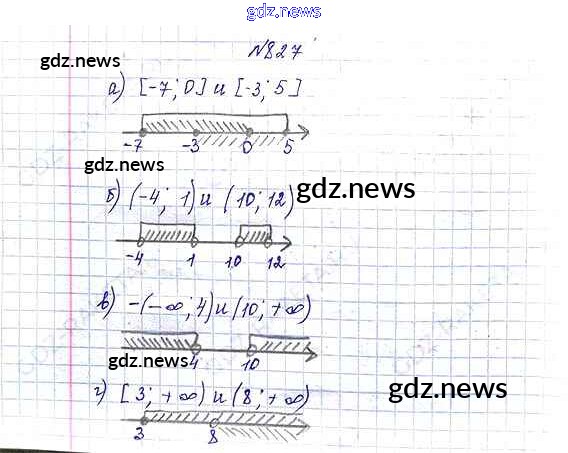 gdz.news
№827
gdz.news
а) [-7; 0] и [-3; 5]
-7 -3 0 5
gdz.news
б) (-4; 1) и (10; 12)
gdz.news
-4 1 10 12
в) -(-∞; 4) и (10; +∞)
gdz.news 4 10
г) [3; +∞) и (8; +∞)
gdz.news
3 8